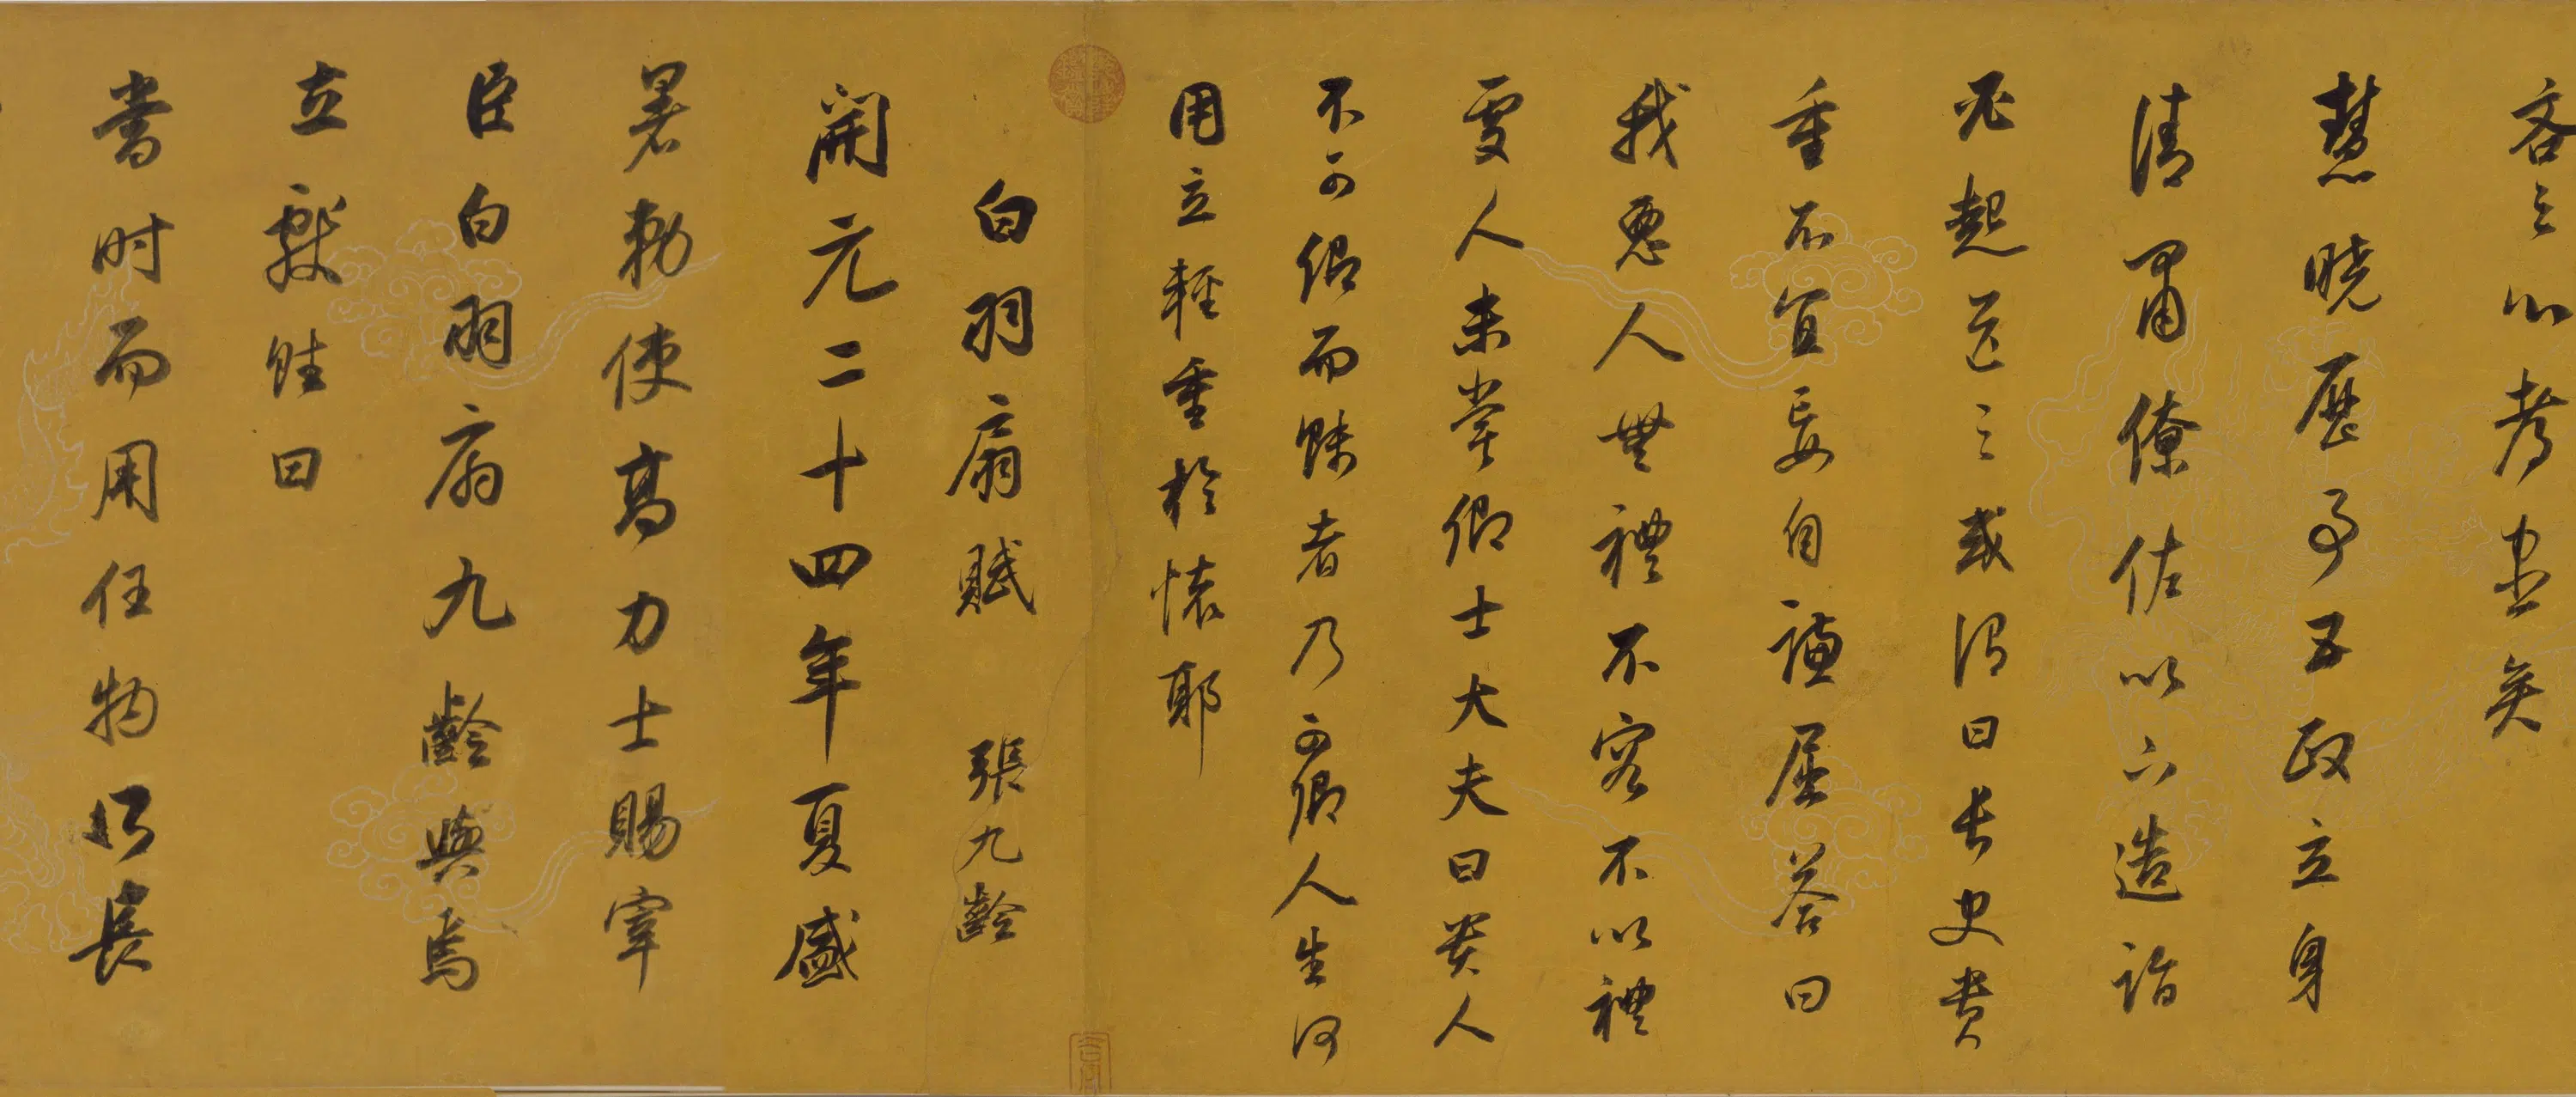 吝之心盡矣
慧曉歷事五政立身
清肅僚佐以下造詣
必起送之或謂曰長史貴
重不宜妄自謙屈荅曰
我惡人無禮不容不以禮
處人未嘗卿士大夫曰貴人
不可卿而賤者乃可卿人生何
用立輕重於懷耶
白羽扇賦 張九齡
開元二十四年夏盛
暑勅使高力士賜宰
臣白羽扇九齡與焉
立獻賦曰
當時而用任物所長